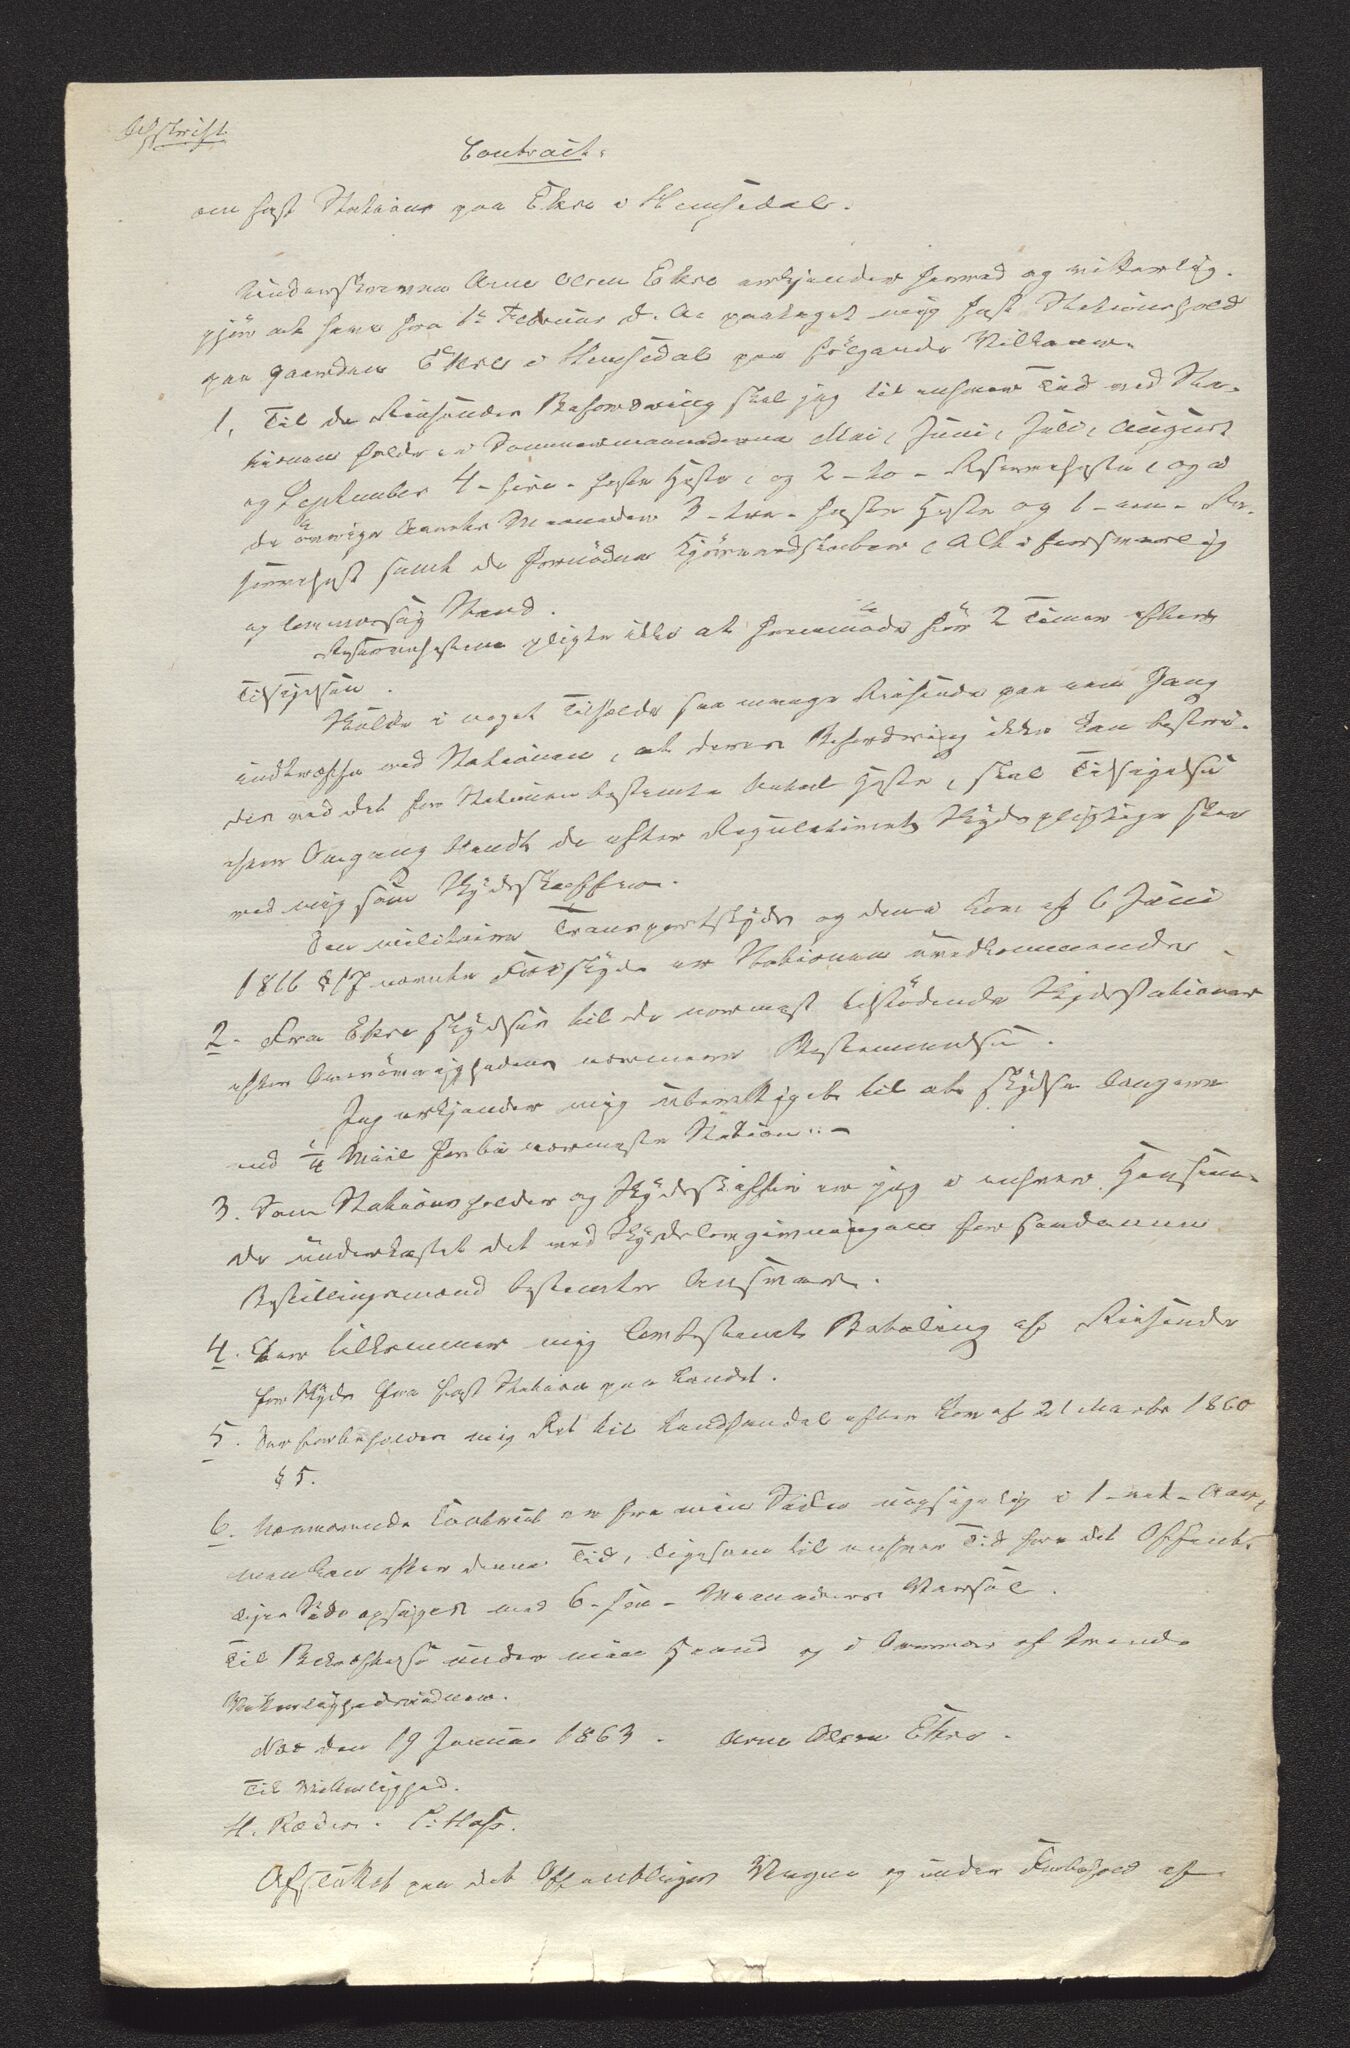 Afskrift
Contract
om fast Station paa Ekre i Hemsedal.
Underskrevne Arne Olsen Ekre erkjender herved og vitterlig-
gjør at have fra 1ste Februar d. A. paataget mig fast Stationshold
paa Gaarden Ekre i Hemsedal paa følgende Vilkaar.
1. Til de Reisendes Befordring skal jeg til enhver Tid ved Sta-
tionen holde, i Sommermaanederne Mai, Juni, Juli, August
og September 4 - fire - faste Heste, og 2 - to - Reserveheste, og i
de øvrige Aarets Maaneder 3 - tre - faste Heste og 1 - een - Re-
servehest samt de fornødne Kjøreredskaber, Alt i forsvarlig
og lovmæssig Stand.
Reservehestene pligte ikke at fremmøde før 2 Timer efter
Tilsigelsen.
Skulde i noget Tilfælde saa mange Reisende paa een Gang
indtræffe ved Stationen, at deres Befordring ikke kan bestri-
des ved det for Stationen bestemte Antal Heste, skal Tilsigelse
efter Omgang blandt de efter Regulativet Skydspligtige skee
ved mig som Skydsskaffer.
Den militaire Transportskyds og den i Lov af 6 Juni
1816 § 17 nævnte Friskyds er Stationen uvedkommende.
2. Fra Ekre skydses til de nærmest tilstødende Skydsstationer
efter Overøvrighedens nærmere Bestemmelse.
Jeg erkjender mig uberettiget til at skydse længere
end 1/4 Miil forbi nærmeste Station. -
3. Som Stationsholder og Skydsskaffer er jeg i enhver Henseen-
de underkastet det ved Skydslovgivningen for saadanne
Bestillingsmænd bestemte Ansvar.
4. Der tilkommer mig lovbestemt Betaling af Reisende
for Skyds fra fast Station paa Landet.
5. Der forbeholdes mig Ret til Landhandel efter Lov af 21 Marts 1860
§ 5.
6. Nærværende Contract er fra min Side uopsigelig i 1 - eet - Aar,
men kan efter denne Tid, ligesom til enhver Tid fra det Offent-
liges Side opsiges med 6 - sex - Maaneders Varsel.
Til Bekræftelse under min Haand og i Overvær af tvende
Vitterlighedsvidner.
Næs den 19 Januar 1863. Arne Olsen Ekre.
Til Vitterlighed.
H. Ræder. C. Hass.
Afsluttet paa det Offentliges Vegne og under Forbehold af